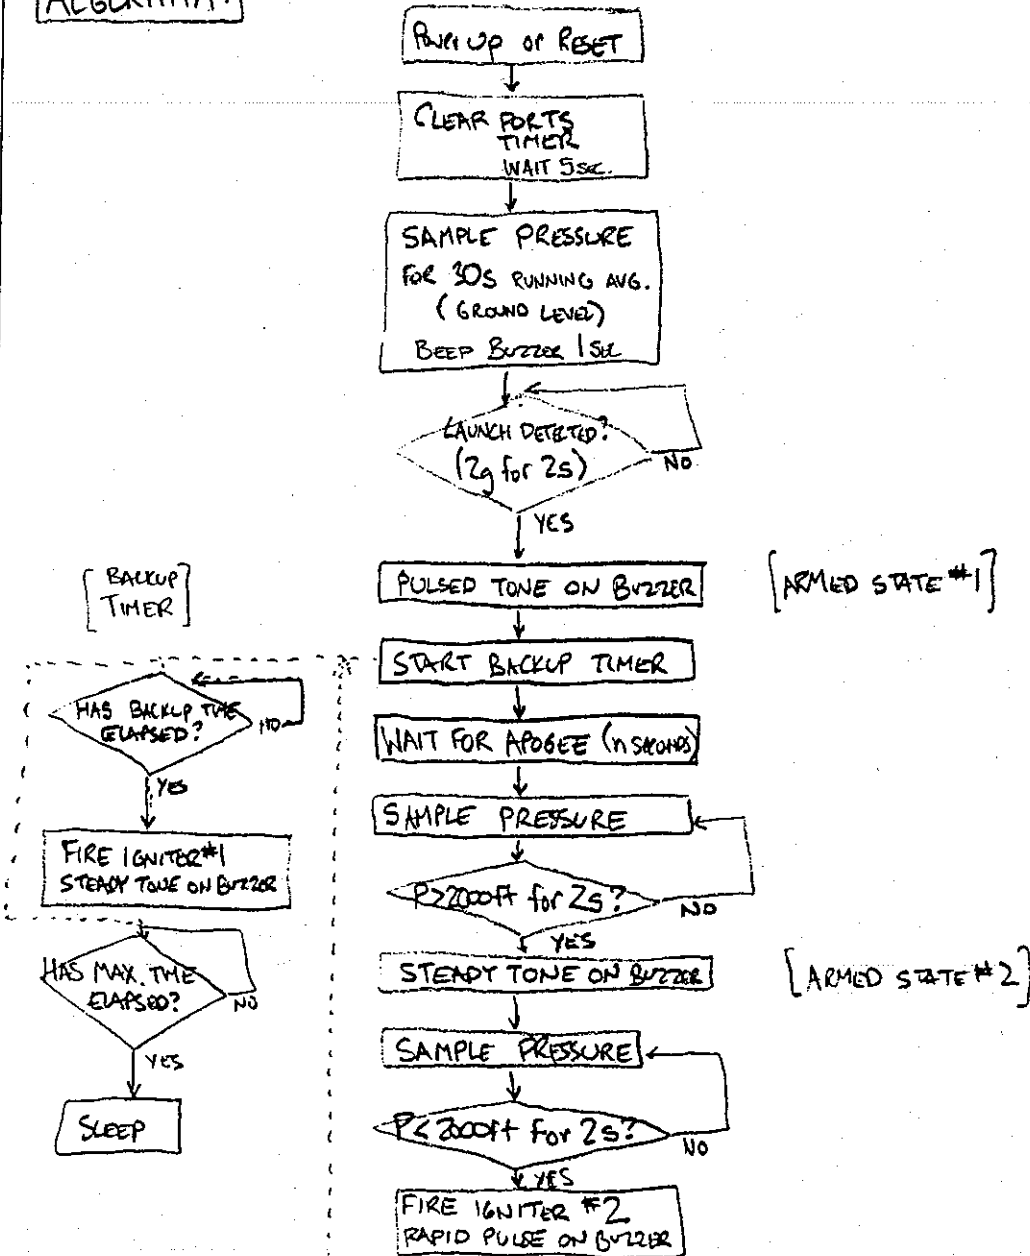 ALGORITHM:
POWER UP or RESET
CLEAR PORTS
TIMER
WAIT 5 SEC.
SAMPLE PRESSURE
FOR 30s RUNNING AVG.
(GROUND LEVEL)
BEEP BUZZER 1 SEC
LAUNCH DETECTED?
(2g for 2s)
NO
YES
PULSED TONE ON BUZZER
[ARMED STATE #1]
START BACKUP TIMER
WAIT FOR APOGEE (n SECONDS)
SAMPLE PRESSURE
P>2000ft for 2s?
NO
YES
STEADY TONE ON BUZZER
[ARMED STATE #2]
SAMPLE PRESSURE
P<2000ft for 2s?
NO
YES
FIRE IGNITER #2
RAPID PULSE ON BUZZER
[BACKUP
TIMER]
HAS BACKUP TIME
ELAPSED?
NO
YES
FIRE IGNITER #1
STEADY TONE ON BUZZER
HAS MAX. TIME
ELAPSED?
NO
YES
SLEEP